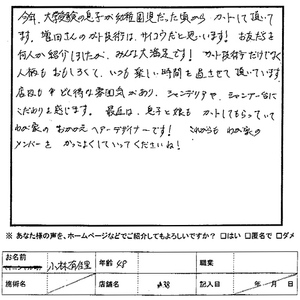 今年、大学受験の息子が幼稚園児だった頃から カットして頂いて
ます。増田さんのカット技術は、サイコウだと思います! お友だちを
何人か紹介しましたが、みんな大満足です! カット技術だけじゃなく
人柄もおもしろくて、いつも楽しい時間を過させて頂いています
店内も とても待な雰囲気があり、シャンデリアや、シャンプー台に
こだわりを感じます。最近は、息子と娘も カットしてもらっていて
わが家の おかかえ ヘアーデザイナーです! これからも わが家の
メンバーを かっこよくしていってくださいね!
※ あなた様の声を、ホームページなどでご紹介してもよろしいですか? □はい □匿名で □ダメ
お名前 小林 有佳里 年齢 49 職業
施術名 店舗名 記入日 年 月 日